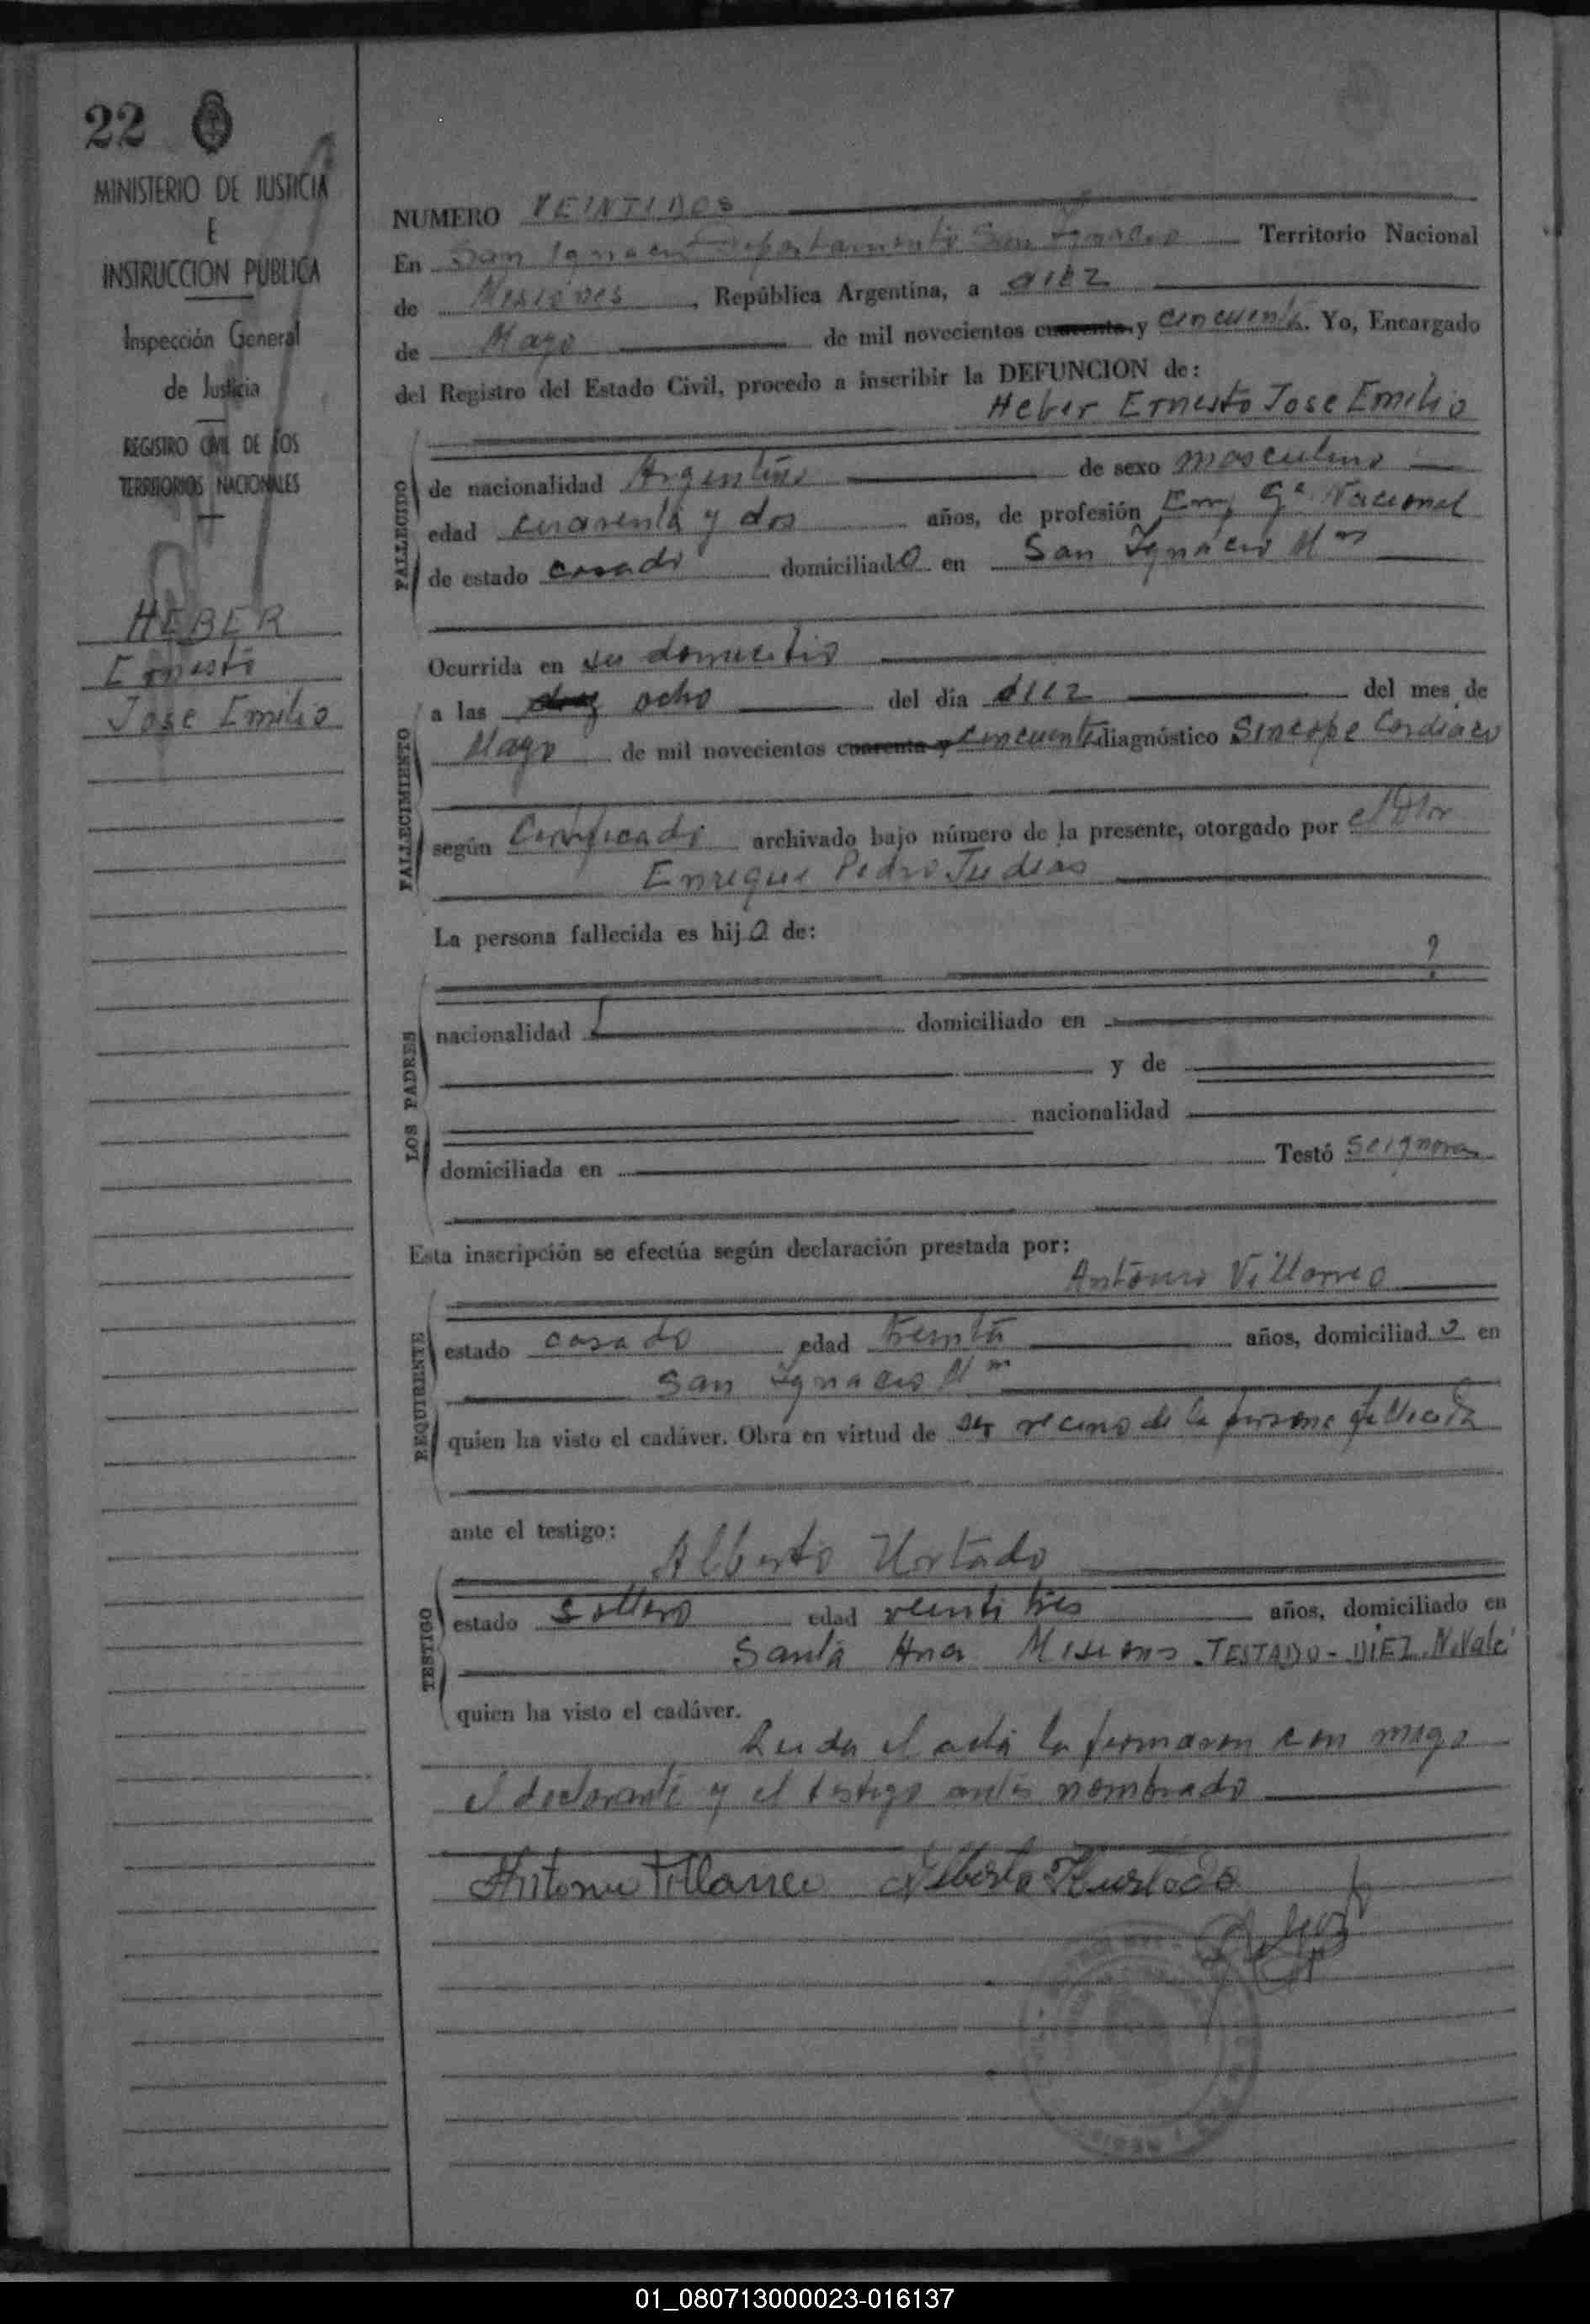 22
MINISTERIO DE JUSTICIA
E
INSTRUCCION PUBLICA
Inspección General
de Justicia
REGISTRO CIVIL DE LOS
TERRITORIOS NACIONALES
HEBER
Ernesto
Jose Emilio
NUMERO VEINTIDOS
En San Ignacio Departamento San Ignacio Territorio Nacional
de Misiones, República Argentina, a diez
de Mayo de mil novecientos cuarenta y cincuenta. Yo, Encargado
del Registro del Estado Civil, procedo a inscribir la DEFUNCION de:
Heber Ernesto Jose Emilio
FALLECIDO
de nacionalidad Argentino de sexo masculino
edad cuarenta y dos años, de profesión Nacional
de estado casado domiciliado en San Ignacio Mnes
Ocurrida en su domicilio
FALLECIMIENTO
a las ocho del día diez del mes de
Mayo de mil novecientos cuarenta y cincuenta diagnóstico Sincope Cardiaco
según Certificado archivado bajo número de la presente, otorgado por el
Enrique Pedro Judias
La persona fallecida es hijo de:
?
LOS PADRES
nacionalidad domiciliado en
y de
nacionalidad
domiciliada en Testó Se ignora
Esta inscripción se efectúa según declaración prestada por:
Antonio Villarreo
REQUIRENTE
estado casado edad treinta años, domiciliado en
San Ignacio Mnes
quien ha visto el cadáver. Obra en virtud de ser vecino de la persona fallecida
ante el testigo:
Alberto Urtado
TESTIGO
estado soltero edad veinti tres años, domiciliado en
Santa Ana Misiones TESTADO-DIEZ. No Vale
quien ha visto el cadáver.
Leida el acta la firmaron con migo
el declarante y el testigo antes nombrado
Antonio Villarreo Alberto Hurtado
01_080713000023-016137